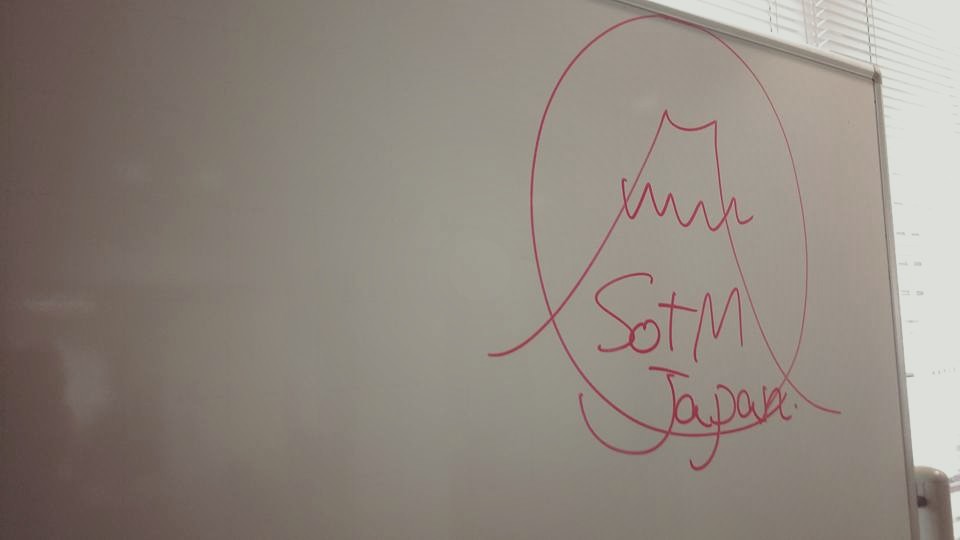 SotM
Japan.